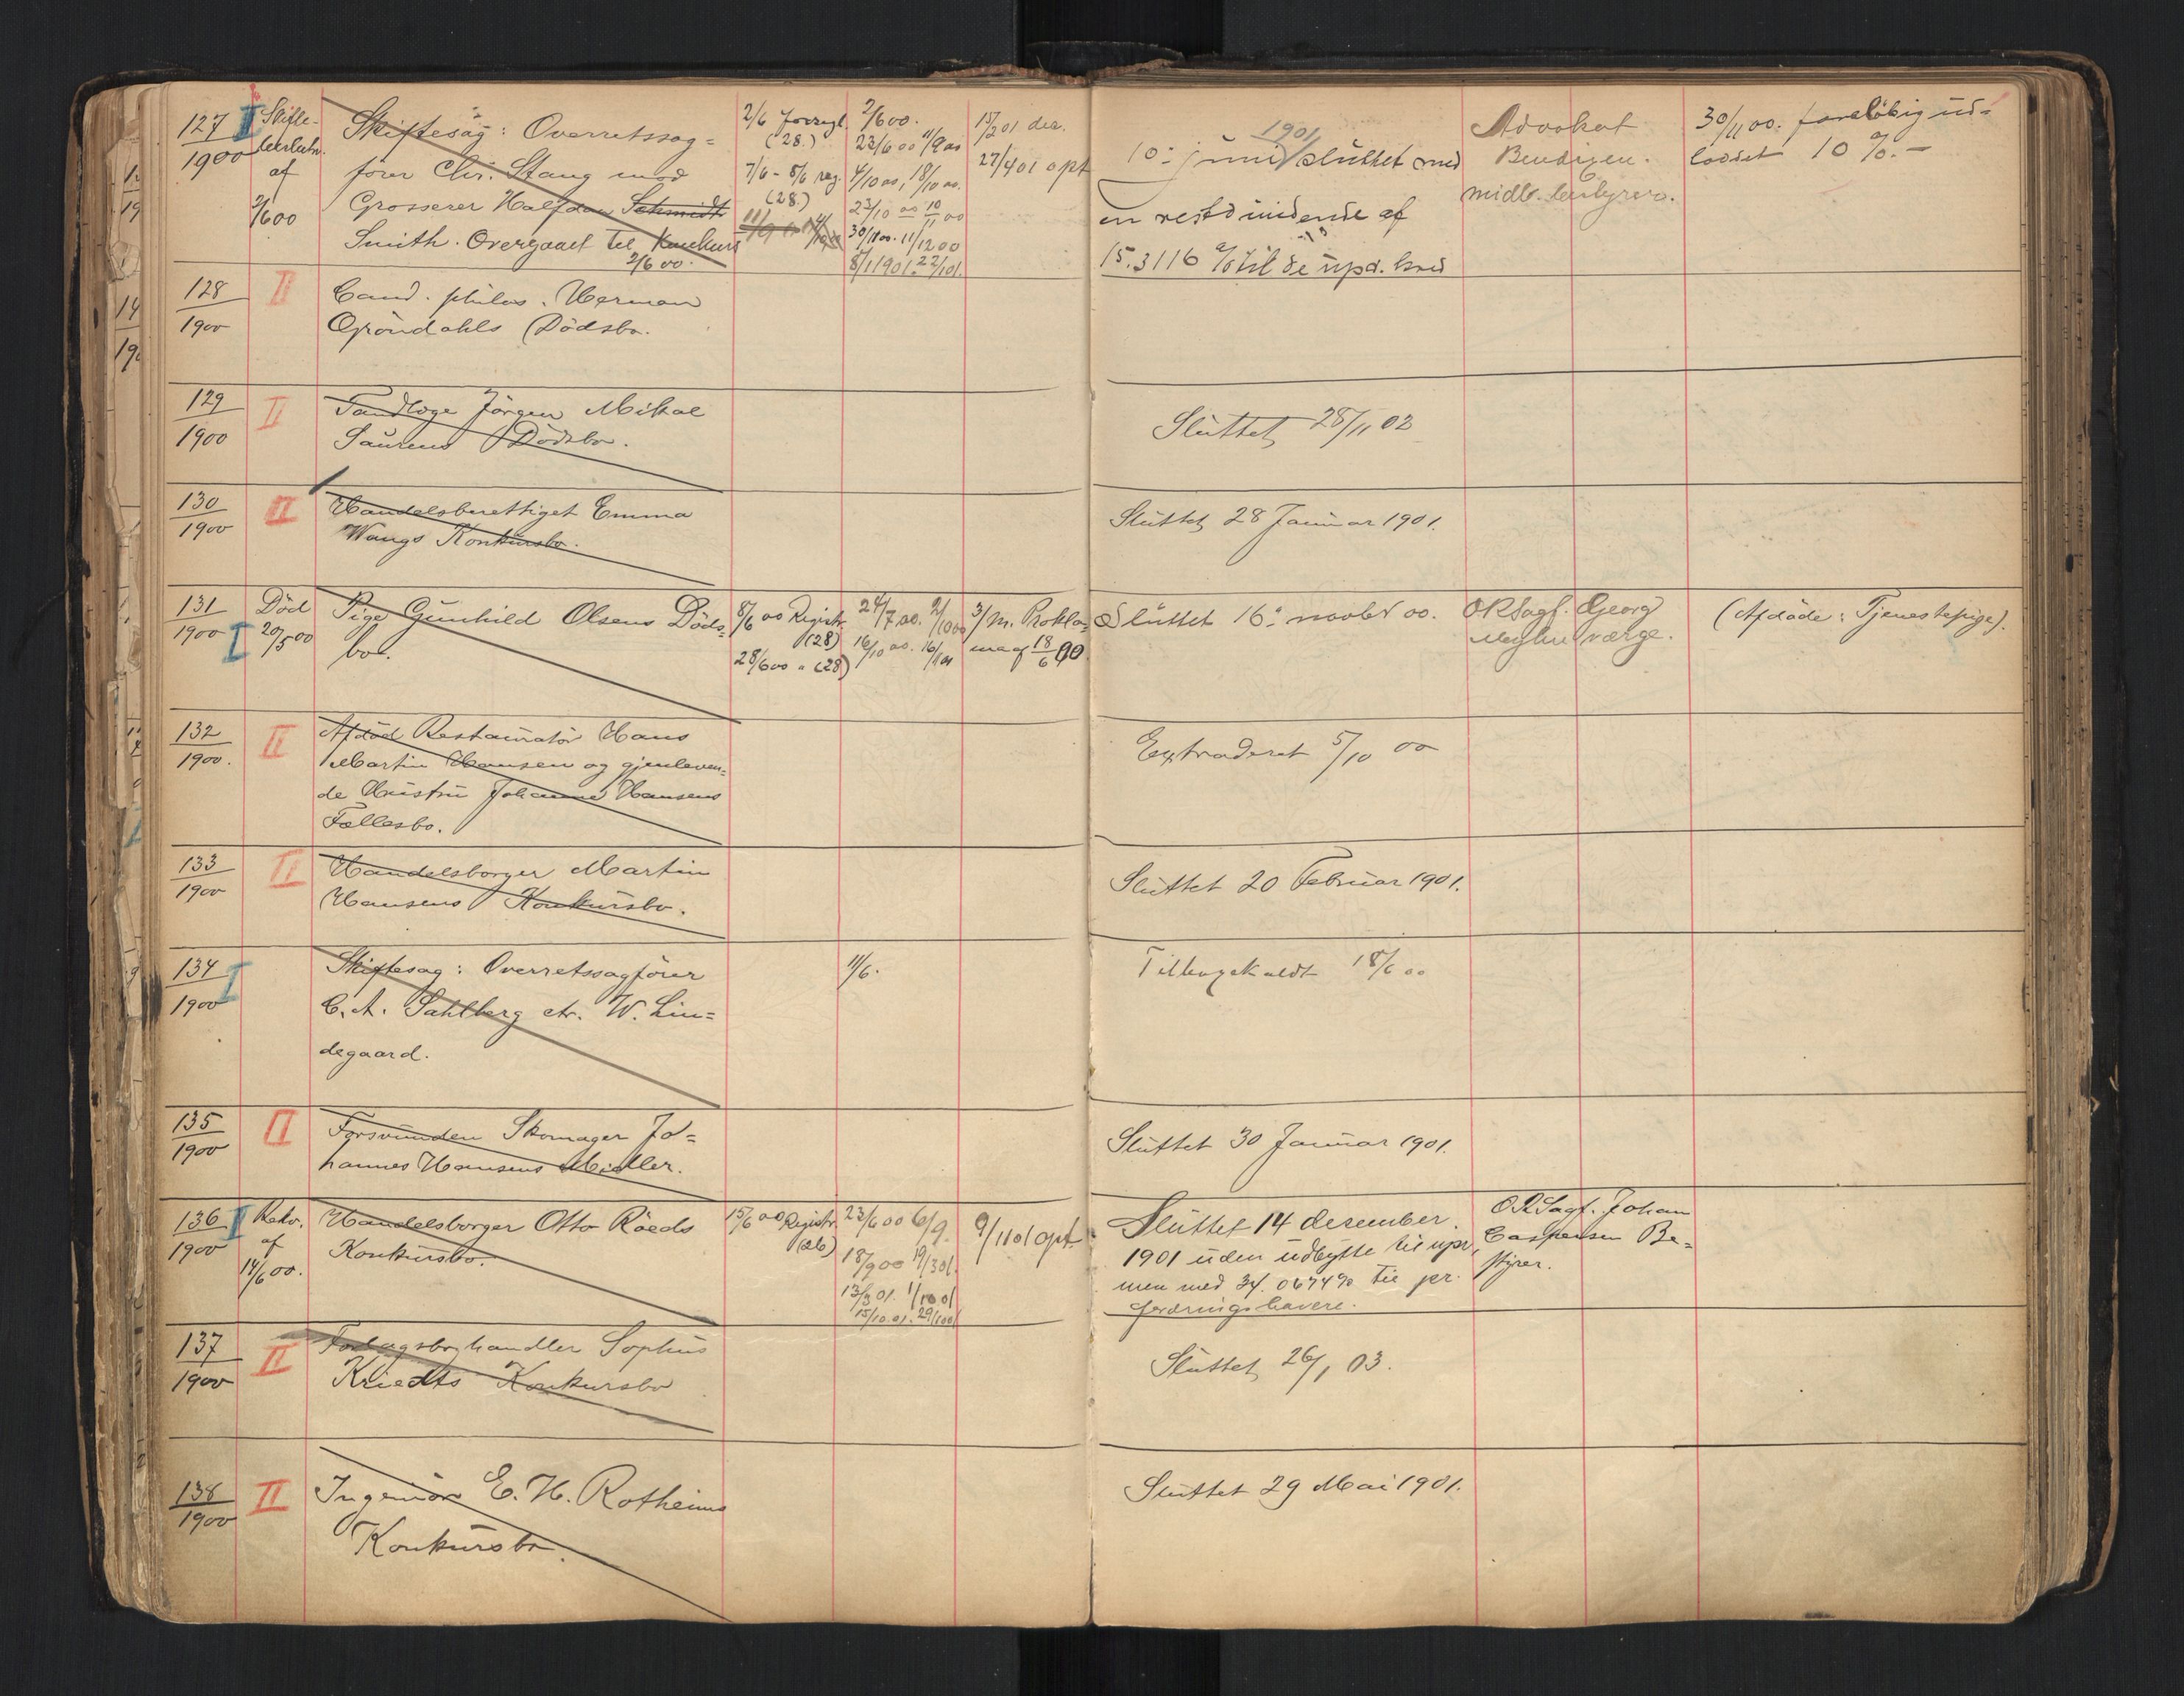 127
1900
I
Skifte-
af
2/6 00
Skiftesag: Overretssag-
fører Chr. Stang mod
Grosserer Halfdan Schmidt
Smith. Overgaaet til Konkurs
2/6 00.
2/6
(28.)
7/6 - 8/6 reg.
(28.)
2/6 00.
23/6 00 11/9 00
4/10 00, 18/10 00.
23/10 00 10/11 00
30/11 00. 11/12 00
8/1 1901. 22/1 01.
15/2 01 dec.
27/4 01 opt
1901
10: juni sluttet med
en restdividende af
15.3116 % til de upr. kred
Advokat
Bendixen.
midl. bestyrer.
30/11 00. foreløbig ud-
loddet 10 %. -
128
1900
II
Cand. philos. Herman
Grøndahls Dødsbo.
129
1900
II
Tandlæge Jørgen Mikal
Saurens Dødsbo.
Sluttet 28/11 02
130
1900
II
Handelsberettiget Emma
Wangs Konkursbo.
Sluttet 28 Januar 1901.
131
1900
I
Død
20/5 00
Pige Gunhild Olsens Døds-
bo.
8/6 00 Registr.
(28)
28/6 00 " (28)
24/7 00. 2/10 00
16/10 00. 16/1 01
3/m. Prokla-
ma af 18/6 00
Sluttet 16: novbr 00.
ORSagf. Georg
værge.
(Afdøde: Tjenestepige).
132
1900.
II
Afdød Restauratør Hans
Martin Hansen og gjenleven-
de Hustru Johanne Hansens
Fællesbo.
Extraderet 5/10 00
133
1900
II
Handelsborger Martin
Hansens Konkursbo.
Sluttet 20 Februar 1901.
134
1900
I
Skiftesag: Overretssagfører
C. A. Dahlberg ctr. W. Lin-
degaard.
11/6.
Tilbagekaldt 18/6 00
135
1900
II
Forsvunden Skomager Jo-
hannes Hansens Midler.
Sluttet 30 Januar 1901.
136
1900
I
Rekv.
af
14/6 00.
Handelsborger Otto Röeds
Konkursbo.
15/6 00 Registr.
(26)
23/6 00 6/9.
18/9 00 19/3 01.
13/3 01. 1/10 01
15/10 01. 29/10 01
9/11 01 opt.
Sluttet 14 desember.
1901 uden udbytte til upr,
men med 34.0674 % til pr.
fordringshavere.
O.R.Sagf. Johan
Caspersen Be-
styrer.
137
1900
II
Forlagsboghandler Sophus
Kriedts Konkursbo
Sluttet 26/1 03.
138
1900
II
Ingeniør E. H. Rotheims
Konkursbo.
Sluttet 29 Mai 1901.